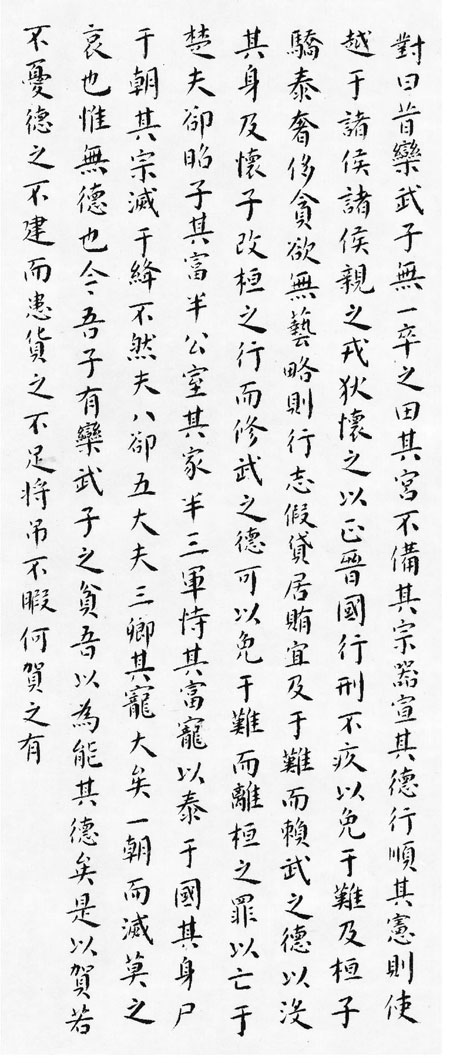 對曰昔欒武子無一卒之田其宮不備其宗器宣其德行順其憲則使
越于諸侯諸侯親之戎狄懷之以正晉國行刑不疚以免于難及桓子
驕泰奢侈貪欲無藝略則行志假貸居賄宜及于難而賴武之德以沒
其身及懷子改桓之行而修武之德可以免于難而離桓之罪以亡于
楚夫郤昭子其富半公室其家半三軍恃其富寵以泰于國其身尸
于朝其宗滅于絳不然夫八郤五大夫三卿其寵大矣一朝而滅莫之
哀也惟無德也今吾子有欒武子之貧吾以為能其德矣是以賀若
不憂德之不建而患貨之不足將吊不暇何賀之有